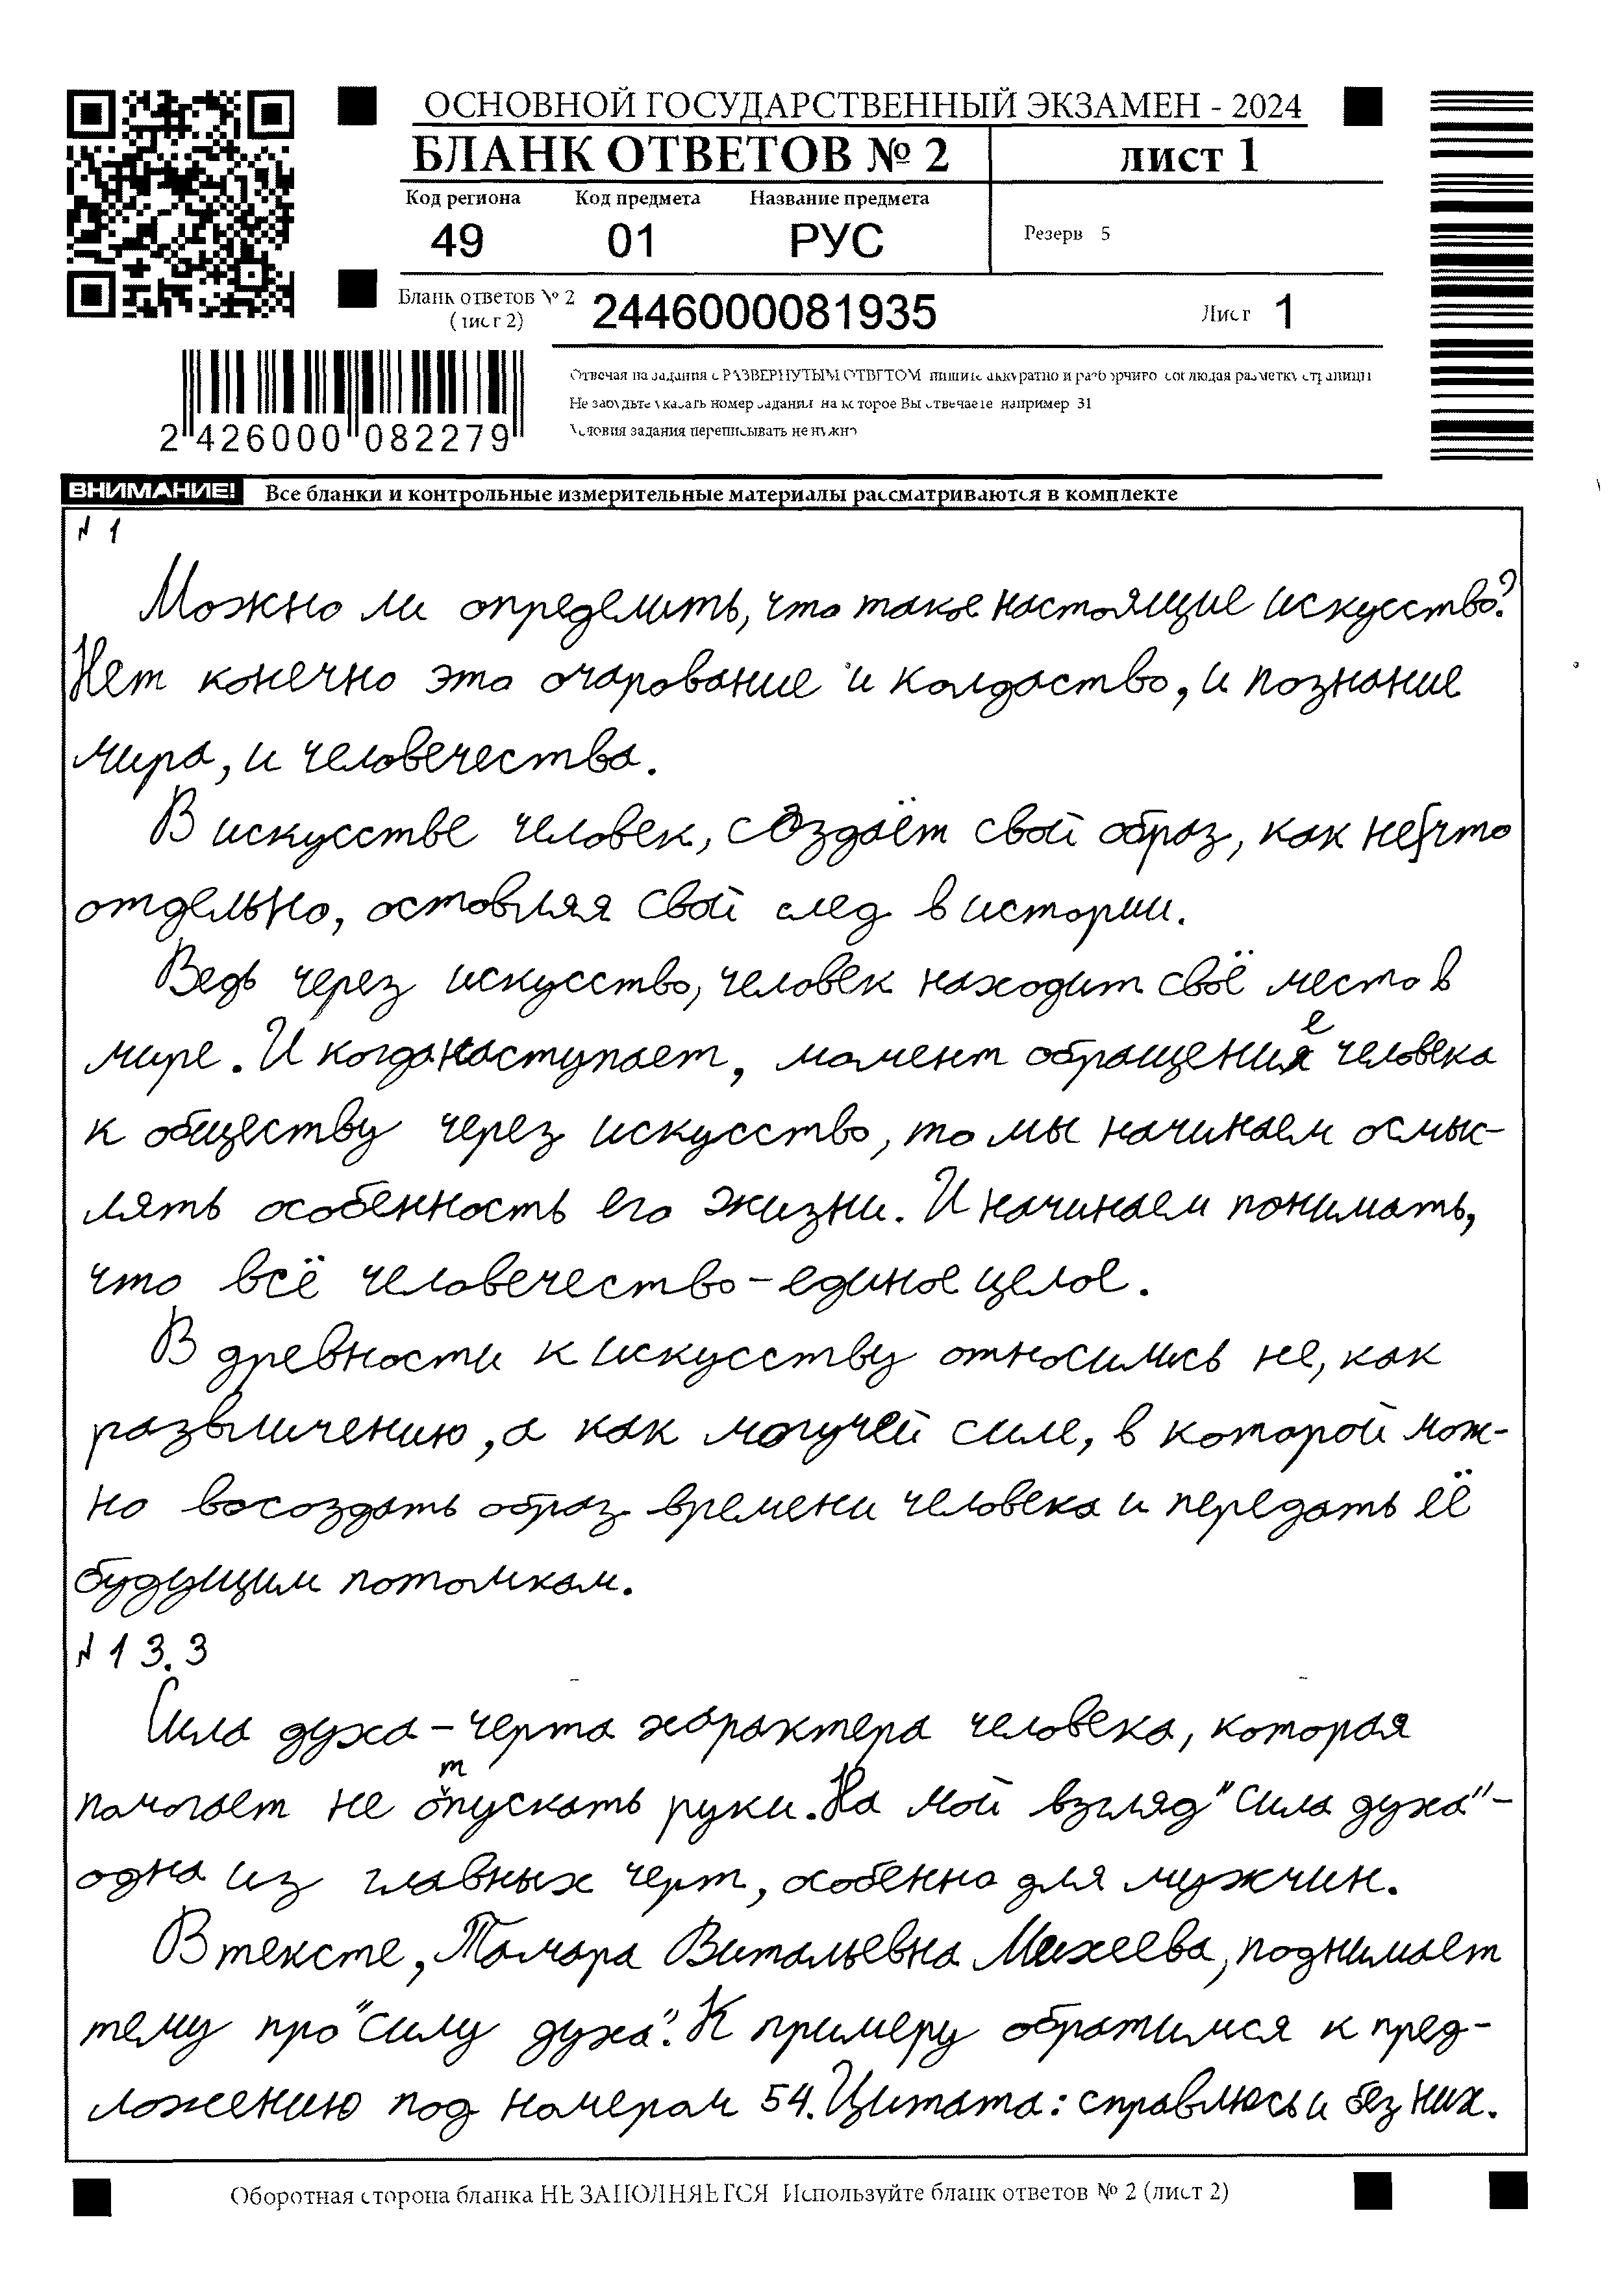 ОСНОВНОЙ ГОСУДАРСТВЕННЫЙ ЭКЗАМЕН - 2024
БЛАНК ОТВЕТОВ № 2
ЛИСТ 1
Код региона Код предмета Название предмета
49 01 РУС
Резерв 5
Бланк ответов № 2
(лист 2)
2446000081935
Лист 1
2 426000 082279
Отвечая на задания с РАЗВЕРНУТЫМ ОТВЕТОМ пишите аккуратно и разборчиво соблюдая разметку страницы
Не забудьте указать номер задания на которое Вы отвечаете например 31
Условия задания переписывать не нужно
ВНИМАНИЕ! Все бланки и контрольные измерительные материалы рассматриваются в комплекте
№ 1
Можно ли определить, что такое настоящие искусство?
Нет конечно это очарование и колдаство, и познание
мира, и человечества.
В искусстве человек, создаёт свой образ, как нечто
отдельно, оставляя свой след в истории.
Ведь через искусство, человек находит своё место в
мире. И когда наступает, момент обращение человека
к обществу через искусство, то мы начинаем осмыс-
лять особенность его жизни. И начинаем понимать,
что всё человечество – единое целое.
В древности к искусству относились не, как
развличению, а как могучей силе, в которой мож-
но восоздать образ времени человека и передать её
будущим потомкам.
№ 13.3
Сила духа – черта характера человека, которая
помогает не отпускать руки. На мой взгляд "Сила духа" –
одна из главных черт, особенно для мужчин.
В тексте, Тамара Витальевна Михеева, поднимает
тему про "Силу духа". К примеру обратимся к пред-
ложению под номером 54. Цитата: справлюсь и без них.
Оборотная сторона бланка НЕ ЗАПОЛНЯЕТСЯ Используйте бланк ответов № 2 (лист 2)